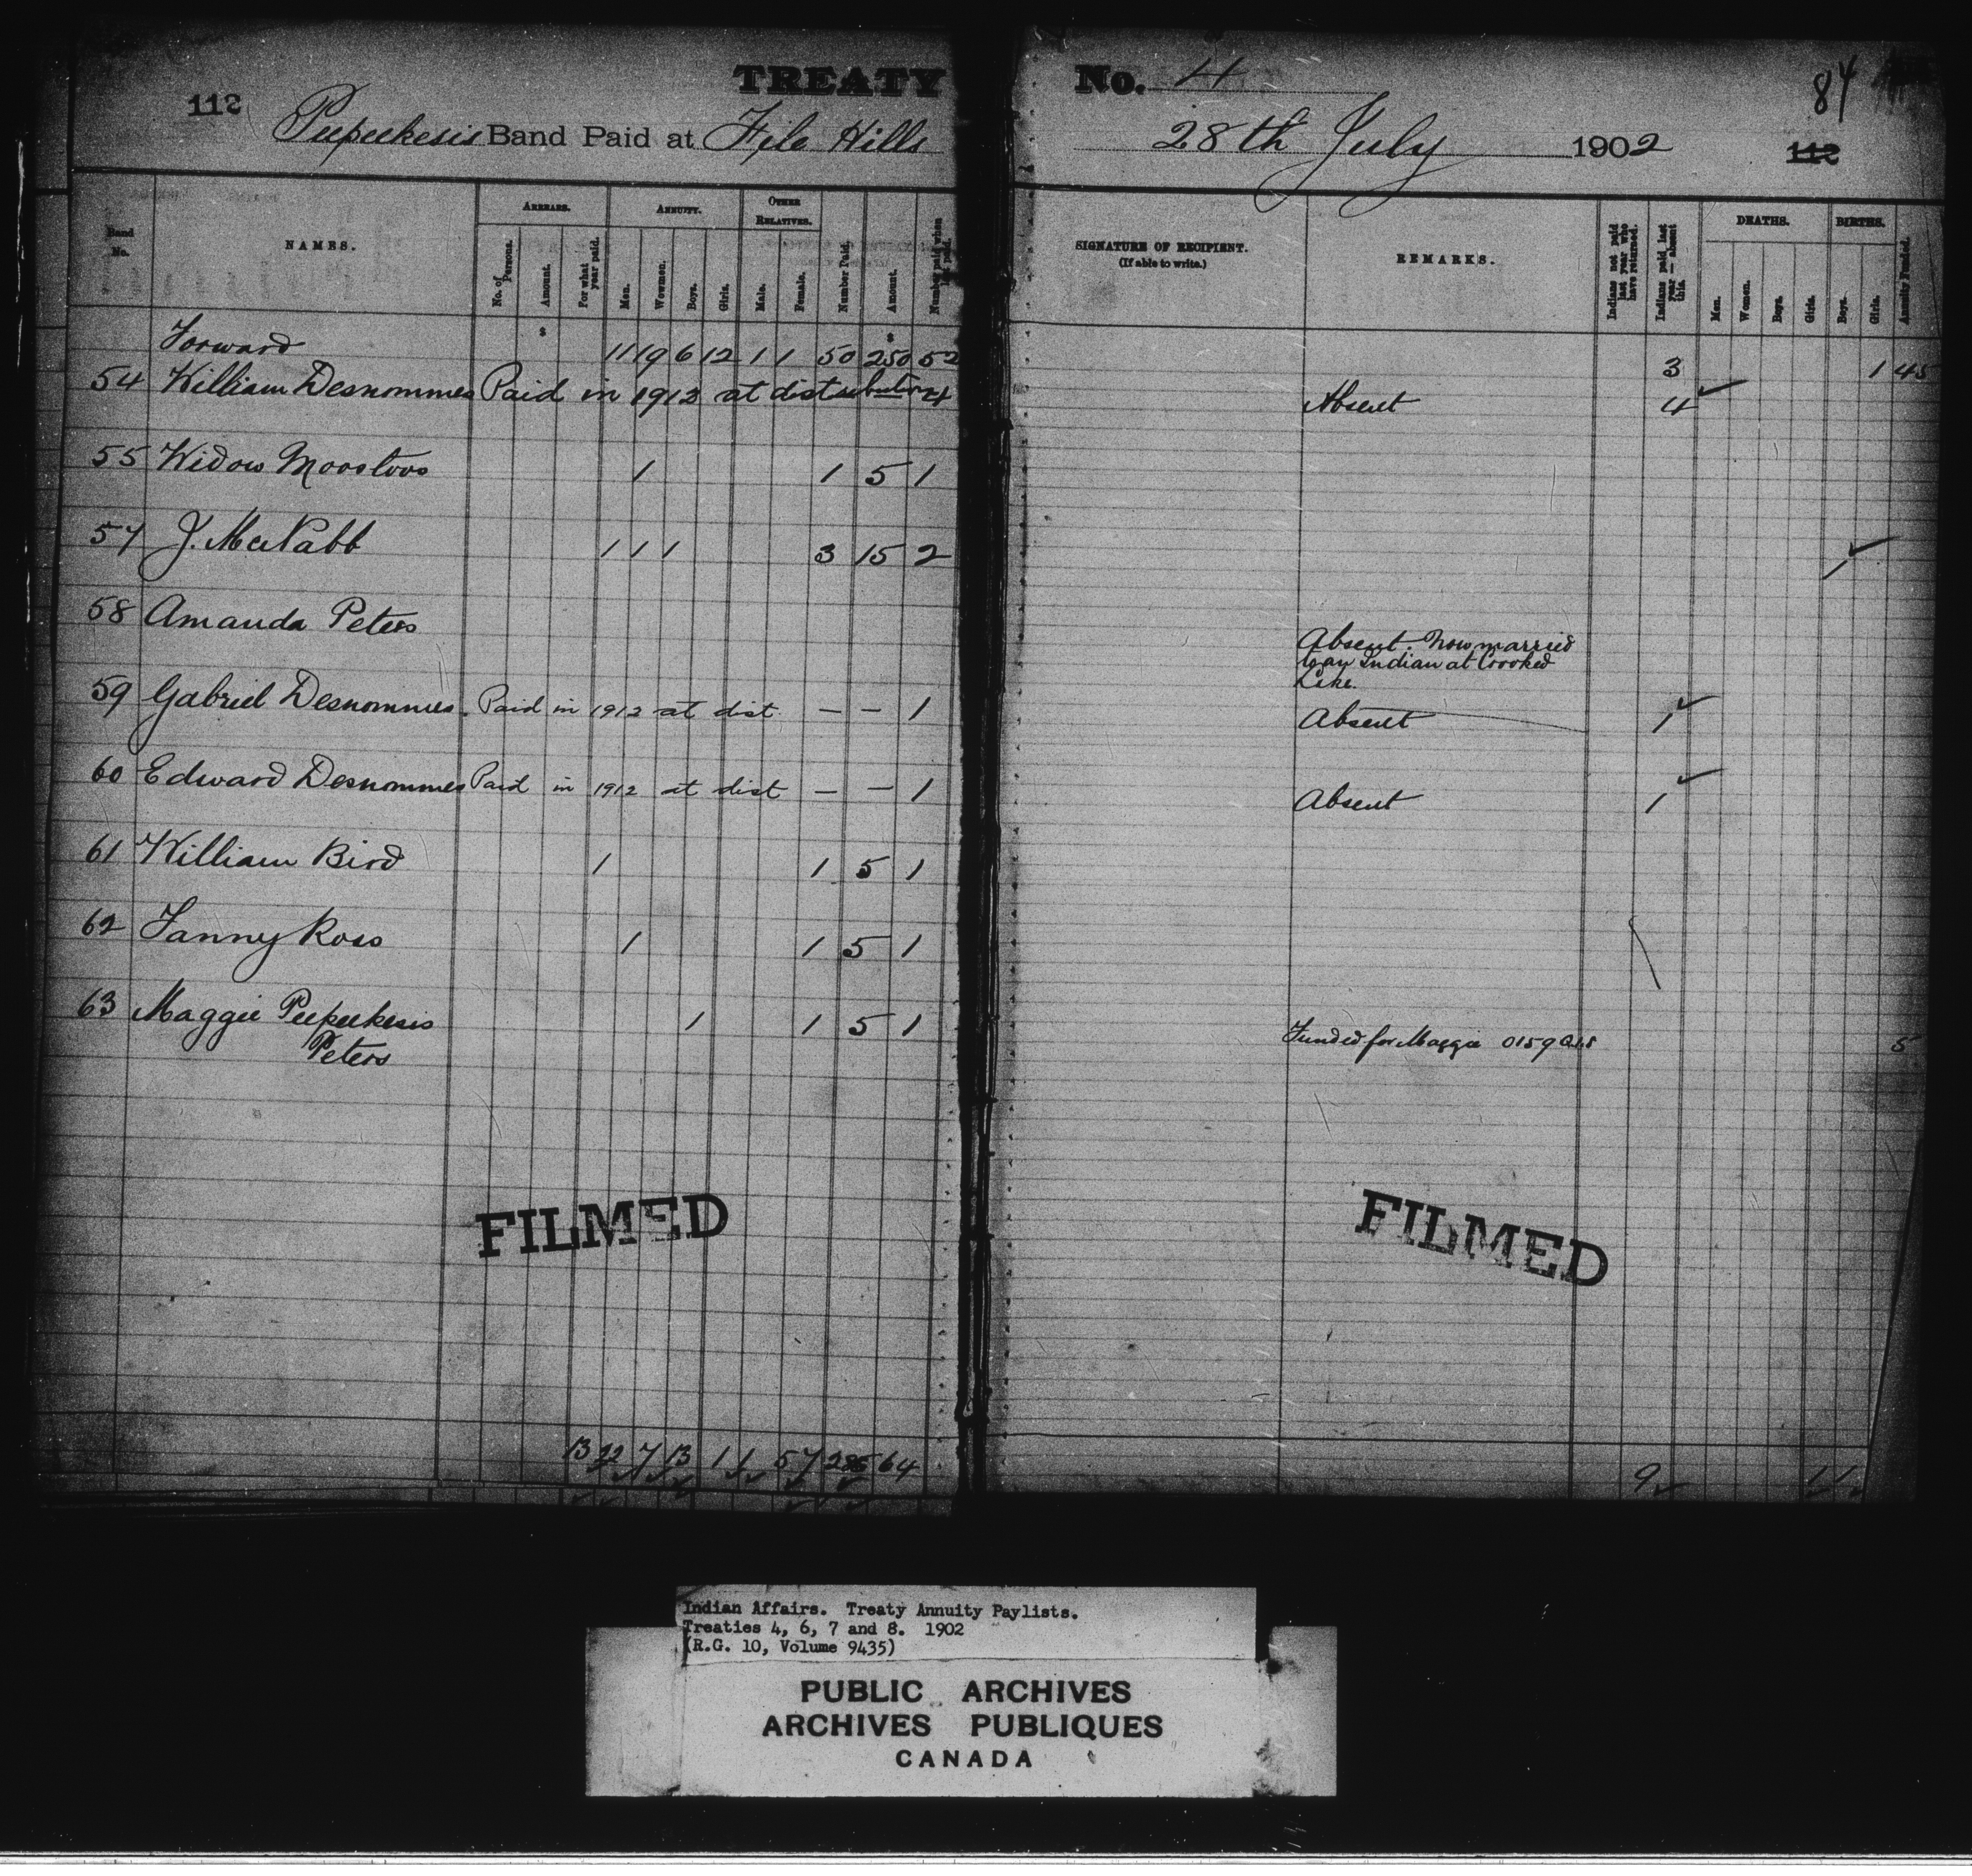 TREATY No. 4
112
84
Peepeekesis Band Paid at File Hills 28th July 1902
112
Band No.
NAMES.
ARREARS.
No. of Persons.
Amount.
For what year paid.
ANNUITY.
Men.
Women.
Boys.
Girls.
OTHER RELATIVES.
Male.
Female.
Number Paid.
Amount.
Number paid when last paid.
SIGNATURE OF RECIPIENT.
(If able to write.)
REMARKS.
Indians not paid last year who have returned.
Indians paid last year — absent this.
DEATHS.
Men.
Women.
Boys.
Girls.
BIRTHS.
Boys.
Girls.
Annuity Funded.
Forward 11 19 6 12 1 1 50 250 52 3 1 45
54 William Desnommes Paid in 1912 at distribution 4 Absent 4
55 Widow Moostoos 1 1 5 1
57 J. McNabb 1 1 1 3 15 2 1
58 Amanda Peters Absent. Now married
to an Indian at Crooked
Lake.
59 Gabriel Desnommes. Paid in 1912 at dist — — 1 Absent 1
60 Edward Desnommes Paid in 1912 at dist — — 1 Absent 1
61 William Bird 1 1 5 1
62 Fanny Ross 1 1 5 1
63 Maggie Peepeekesis 1 1 5 1 Funded for Maggie 0159 5
Peters
FILMED
FILMED
13 22 7 13 1 1 57 285 64 9 1 1
Indian Affairs. Treaty Annuity Paylists.
Treaties 4, 6, 7 and 8. 1902
(R.G. 10, Volume 9435)
PUBLIC ARCHIVES
ARCHIVES PUBLIQUES
CANADA